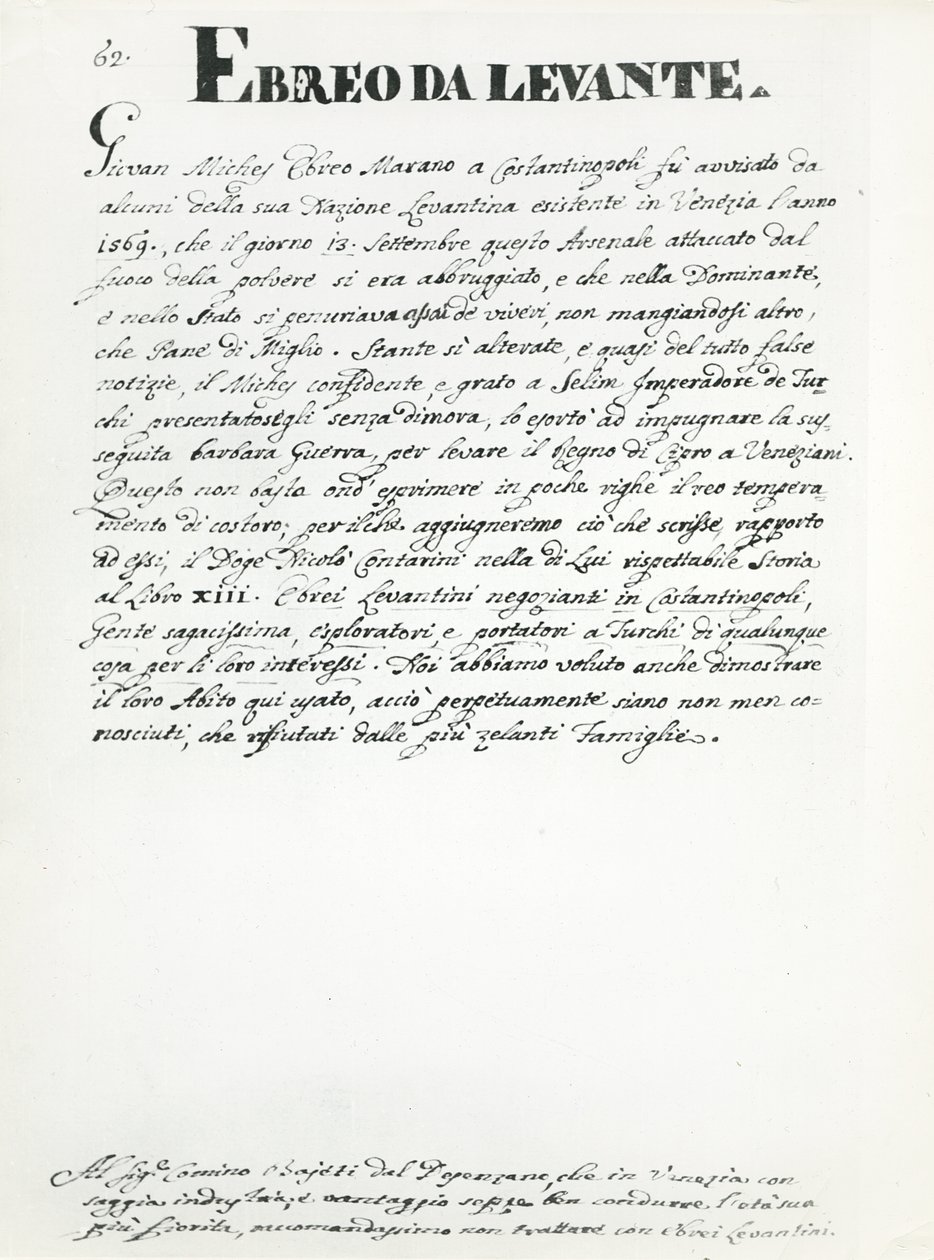 62.
EBREO DA LEVANTE.
Giovan Miches Ebreo Marano a Costantinopoli fù avvisato da
alcuni della sua Nazione Levantina esistente in Venezia l'anno
1569., che il giorno 13. Settembre questo Arsenale attaccato dal
fuoco della polvere si era abbruggiato, e che nella Dominante,
e nello Stato si penuriava assai de viveri, non mangiandosi altro,
che Pane di Miglio. Stante sì alterate, e quasi del tutto false
notizie, il Miches confidente, e grato a Selim Imperadore de Tur-
chi presentatosegli senza dimora, lo esortò ad impugnare la sus-
seguita barbara Guerra, per levare il Regno di Cipro a Veneziani.
Questo non basta ond' esprimere in poche righe il reo tempera-
mento di costoro; per ilche aggiugneremo ciò che scrisse, rapporto
ad essi, il Doge Nicolò Contarini nella di Lui rispettabile Storia
al Libro XIII. Ebrei Levantini negozianti in Costantinopoli,
Gente sagacissima, esploratori, e portatori a Turchi di qualunque
cosa per li loro interessi. Noi abbiamo voluto anche dimostrare
il loro Abito qui usato, acciò perpetuamente siano non men co=
nosciuti, che rifiutati dalle più zelanti Famiglie.
Al Sig.r Comino dal Desenzano, che in Venezia con
saggia industria, e vantaggio seppe ben condurre l'età sua
più fiorita, raccomandassimo non trattare con Ebrei Levantini.